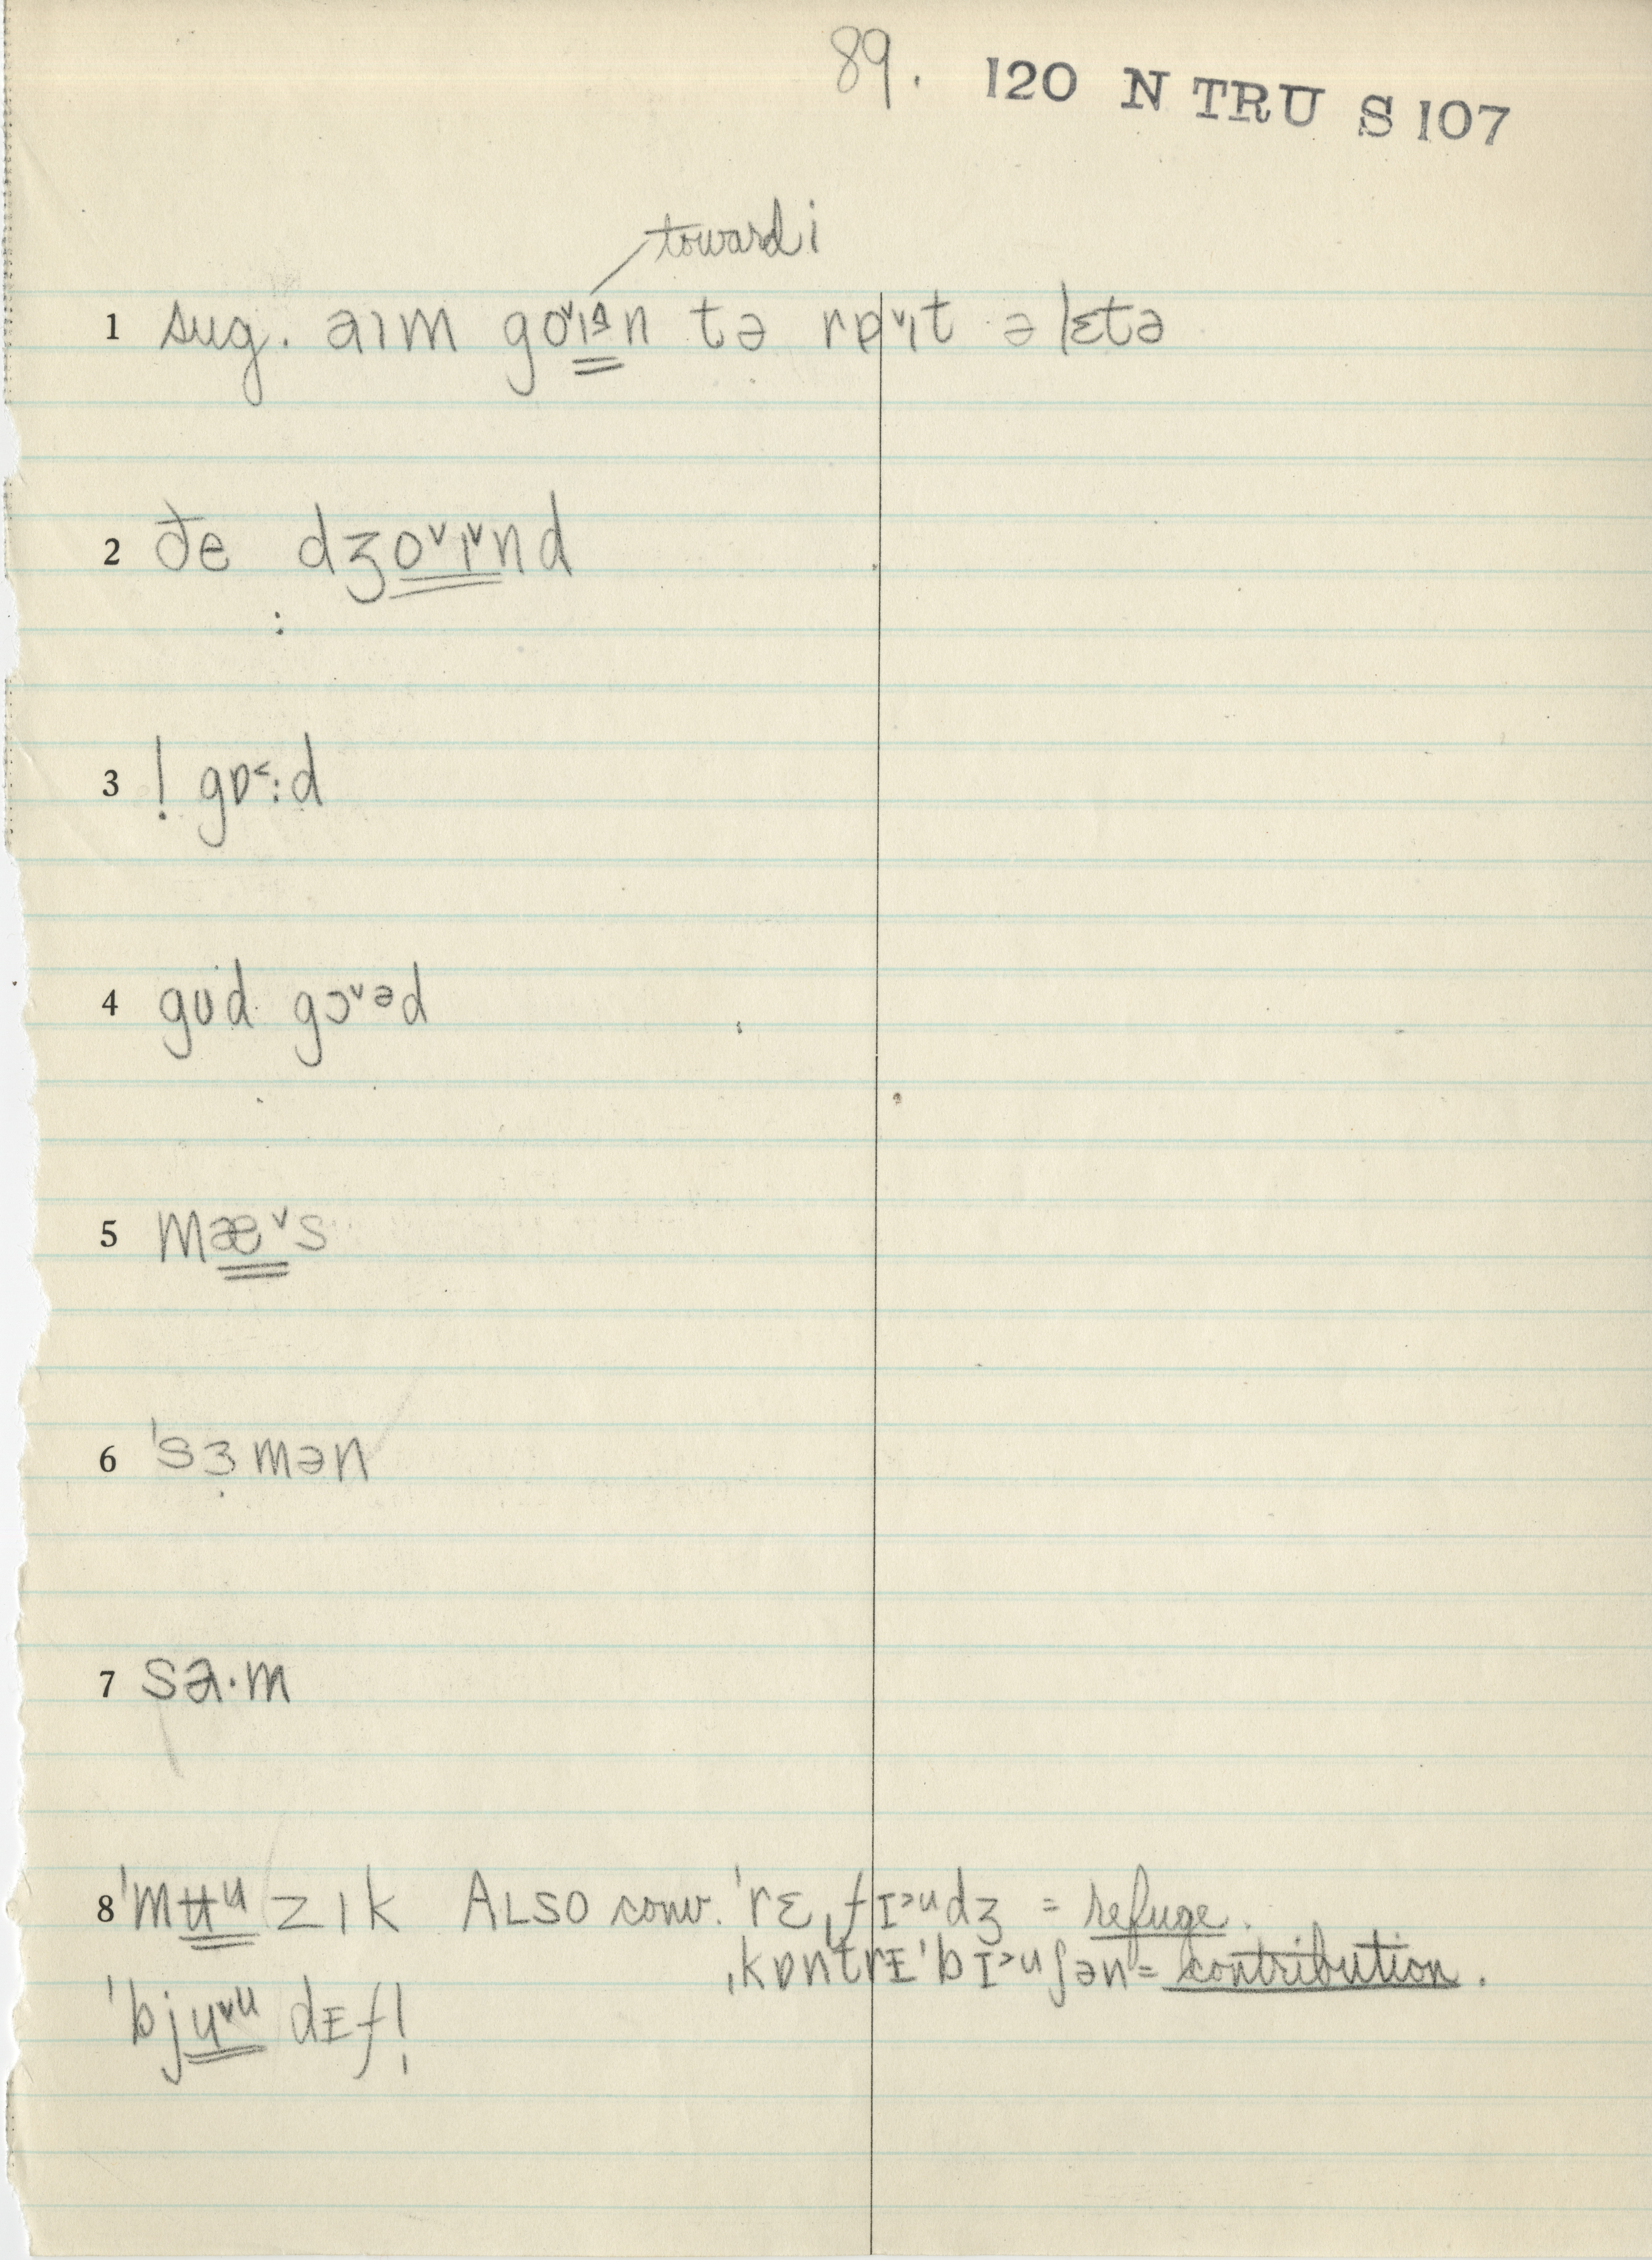 89. 120 N TRU S 107
toward i
1 sug. aɪm go˅ɪən tə rɒ˅ɪt ə lɛtə
2 ðe dʒo˅ɪ˅nd
3 ! gɒ˂:d
4 gʊd gɔ˅əd
5 mæ˅s
6 ˈsɜmən
7 sə·m
8 ˈmʉᵘzɪk ALSO conv. ˈrɛˌfɪ˃ᵘdʒ = refuge.
ˌkɒntrɪˈbɪ˃ᵘʃən = contribution.
ˈbju˅ᵘdɪfl̩